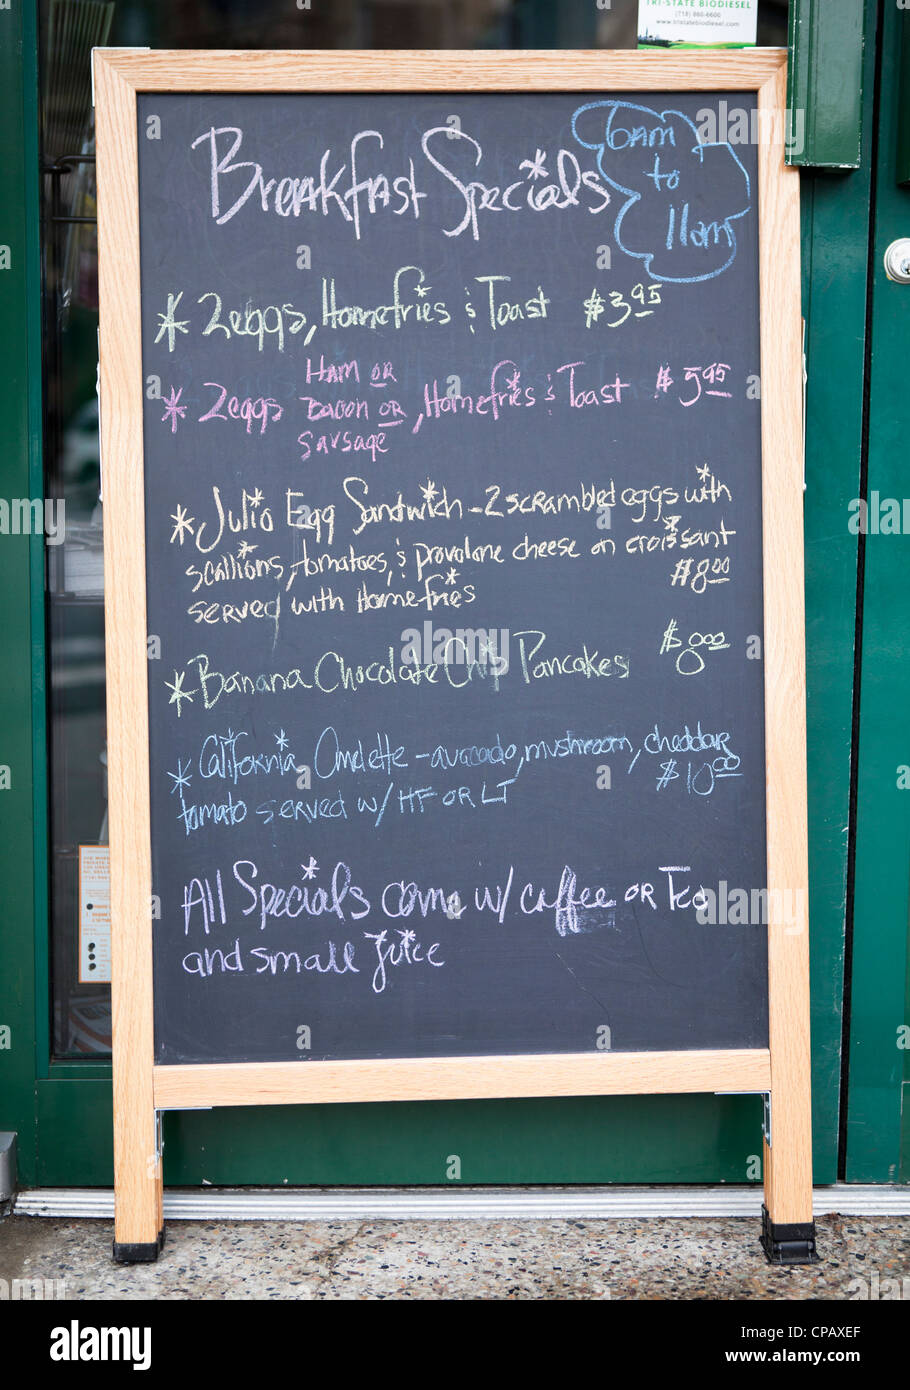 TRI-STATE BIODIESEL
(718) 860-6600
www.tristatebiodiesel.com
Breakfast Specials
6am
to
11am
* 2eggs, Homefries & Toast $3.95
* 2eggs Ham or Bacon or Sausage, Homefries & Toast $5.95
* Julio Egg Sandwich - 2 scrambled eggs with
scallions, tomatoes, & provalone cheese on croissant
served with Homefries $8.00
* Banana Chocolate Chip Pancakes $8.00
* California Omelette - avacado, mushroom, cheddar
tomato served w/ HF OR LT $10.00
All Specials come w/ coffee or Tea
and small juice
alamy
Image ID: CPAXEF
www.alamy.com